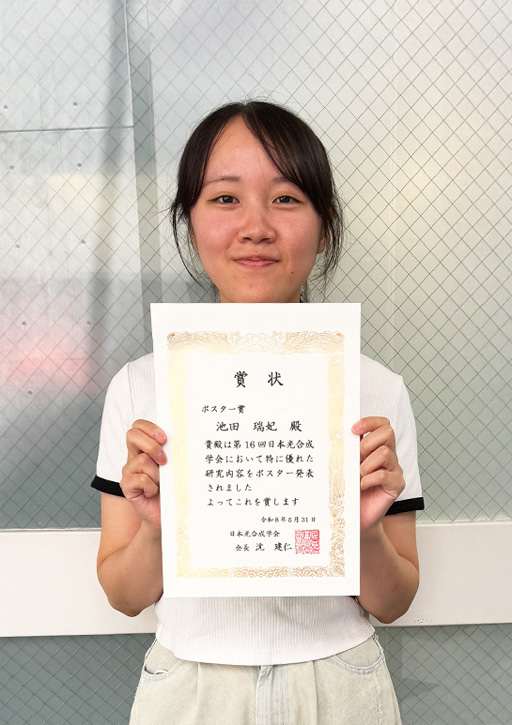 賞状
ポスター賞
池田 瑞妃 殿
貴殿は第16回日本光合成
学会において特に優れた
研究内容をポスター発表
されました
よってこれを賞します
令和8年5月31日
日本光合成学会
会長 沈 建仁